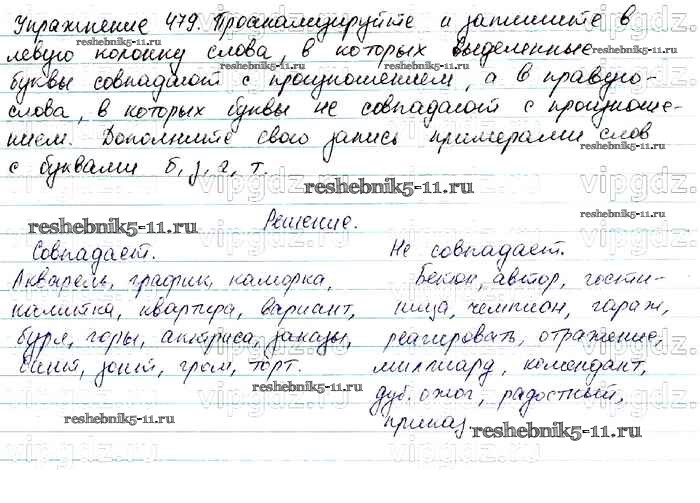 Упражнение 479. Проанализируйте и запишите в
левую колонку слова, в которых выделенные
reshebnik5-11.ru
reshebnik5-11.ru
буквы совпадают с произношением, а в правую-
слова, в которых буквы не совпадают с произноше-
нием. Дополните свою запись примерами слов
с буквами б, з, г, т.
reshebnik5-11.ru
reshebnik5-11.ru
Решение.
Совпадает. Не совпадает.
Акварель, график, каморка, Бекон, автор, гости-
калитка, квартира, вариант, ница, чемпион, гараж,
буря, горы, актриса, заказы, реагировать, отражение,
зонт, гром, торт. миллиард, комендант,
reshebnik5-11.ru
дуб, ожог, радостный,
reshebnik5-11.ru
приказ
reshebnik5-11.ru
vipgdz.ru